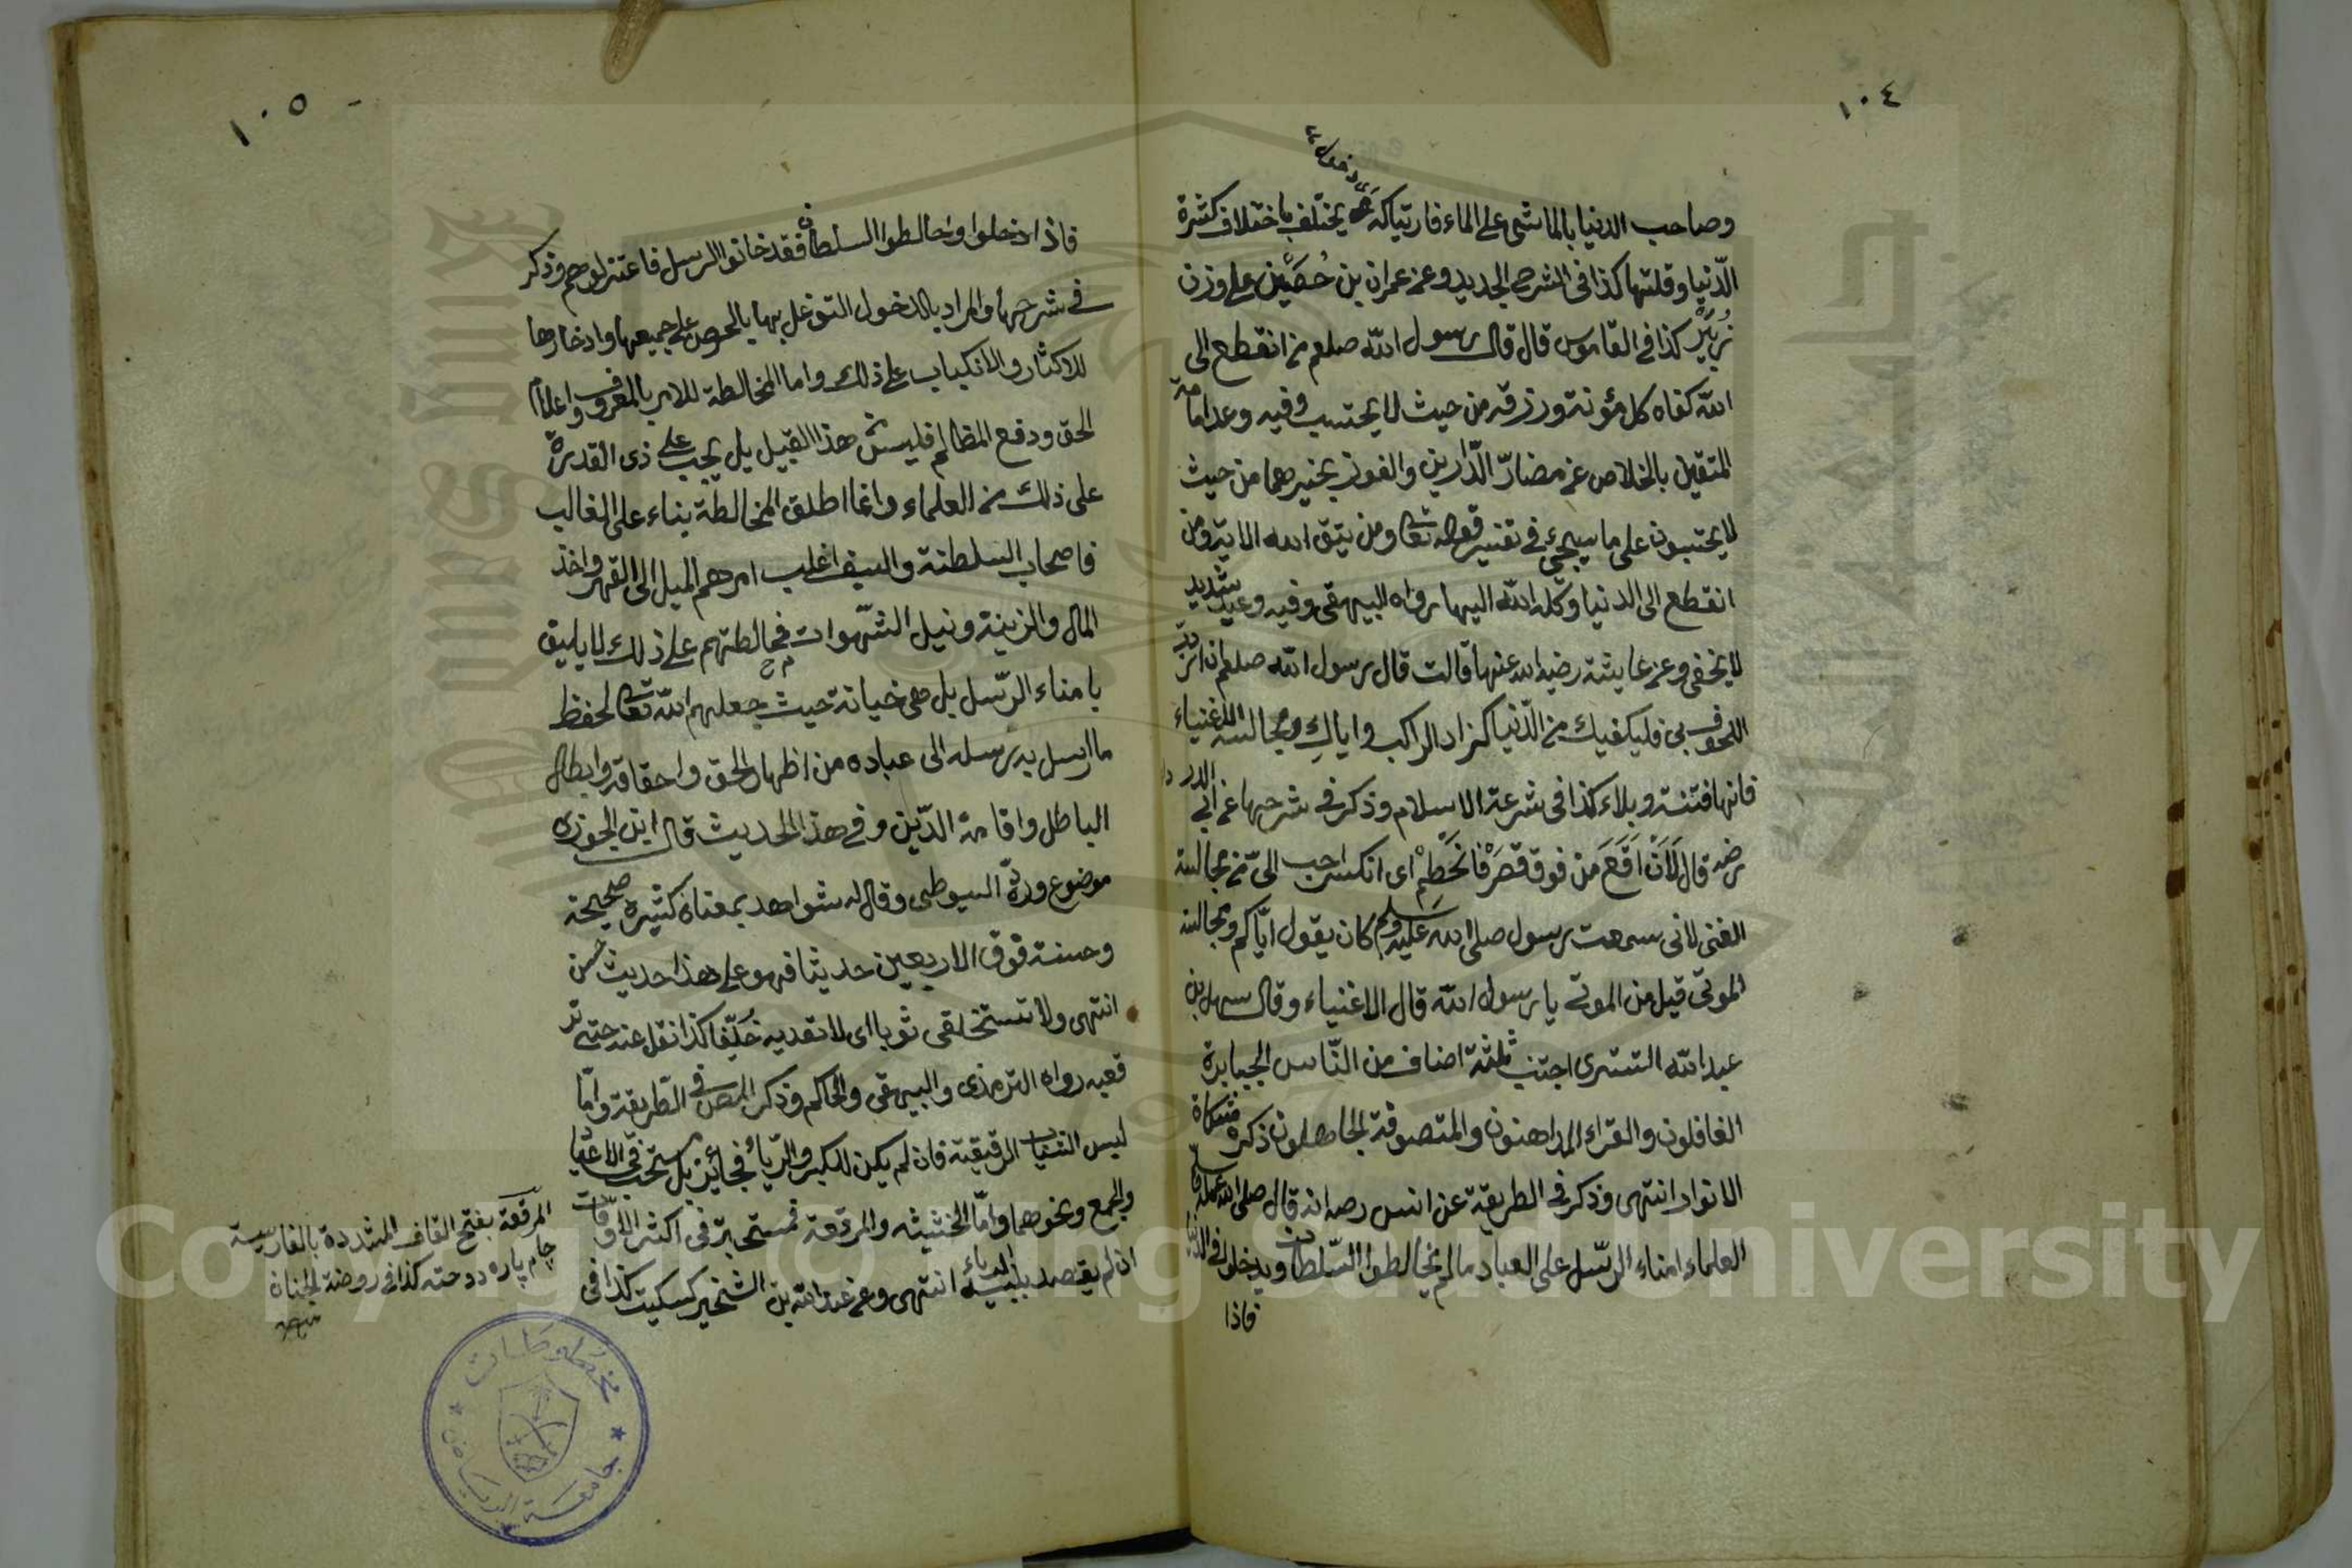 ١٠٤
وصاحب الدنيا بالماشى على الماء فارتباكه يختلف باختلاف كثرة
الدّنيا وقلتها كذا فى الشرح الجديد وعن عمران بن حُصَيْن على وزن
زُبَيْر كذا فى القاموس قال قال رسول اللّه صلعم من انقطع الى
اللّه كفاه كل مؤنة ورزقه من حيث لا يحتسب وفيه وعد امامة
المتقين بالخلاص عن مضارّ الدّارين والفوز بخيرهما من حيث
لا يحتسبون على ما سيجئ فى تفسير قوله تعا ومن يتق الله الاية ومن
انقطع الى الدنيا وكله اللّه اليها رواه البيهقى وفيه وعيد شديد
لا يخفى وعن عايشة رضى الله عنها قالت قال رسول اللّه صلعم ان اردت
اللحوق بى فليكفيك من الدّنيا كزاد الراكب واياكِ ومجالسة الاغنياء
فانها فتنة وبلاء كذا فى شرعة الاسلام وذكر فى شرحها عن ابى الدرداء
رضه قال لَاَنْ اَقَعَ من فوق قصر فانحَطِمْ اى انكسر احب الىّ من مجالسة
الغنى لانى سمعت رسول صلى الله عليه وسلم كان يقول ايّاكم ومجالسة
الموتى قيل من الموتى يا رسول اللّه قال الاغنياء وقال سهل بن
عبد اللّه التسترى اجتنب ثلثة اصناف من النّاس الجبابرة
الغافلون والقراء المداهنون والمتصوفة الجاهلون ذكره مشكاة
الانوار انتهى وذكر فى الطريقة عن انس رصه انه قال صلى الله عليه وسلم
العلماء امناء الرّسل على العباد مالم يخالطوا السّلطان ويدخلوا فى الدّنيا
فاذا
١٠٥
فاذا دخلوا وخالطوا السلطان فقد خانوا الرسل فاعتزلوهم وذكر
فى شرحها والمراد بالدخول التوغل بها بالحرص على جميعها وادخارها
للاكثار والانكباب على ذلك واما المخالطة للامر بالمعروف واعلام
الحق ودفع المظالم فليس من هذا القبيل بل يجب على ذى القدرة
على ذلك من العلماء وانما اطلق المخالطة بناء على الغالب
فاصحاب السلطنة والسيف اغلب امرهم الميل الى القهر واخذ
المال والزينة ونيل الشّهوات فمخالطتهم على ذلك لا يليق
بامناء الرّسل بل هى خيانة حيث جعلهم اللّه تعا لحفظ
ما ارسل به رسله الى عباده من اظهار الحق واحقاقه وابطال
الباطل واقامة الدّين وفى هذا الحديث قال ابن الجوزى
موضوع وردّه السيوطى وقال له شواهد بمعناه كثيرة صحيحة
وحسنة فوق الاربعين حديثا فهو على هذا حديث حسن
انتهى ولا تستخلقى ثوبا اى لا تعديه خَلِقا كذا نقل عنه حتى تر
قعيه رواه الترمذى والبيهقى والحاكم وذكر المص فى الطّريقة وامّا
لبس الثياب الرقيقة فان لم يكن للكبر والرّياء فجائز بل مستحب فى الاعياد
والجمع ونحوهما وامّا الخشينة والمرقعة فمستحبة فى اكثر الاوقات
ان لم يقصد بلبسه الرياء انتهى وعن عبد اللّه بن الشخير كسكيت كذا فى
المرقعة بفتح القاف المشددة بالفارسية
جام پاره دوخته كذا فى روضة الجنان
منه
مخطوطات
جامعة الرياض
Copyright © King Saud University